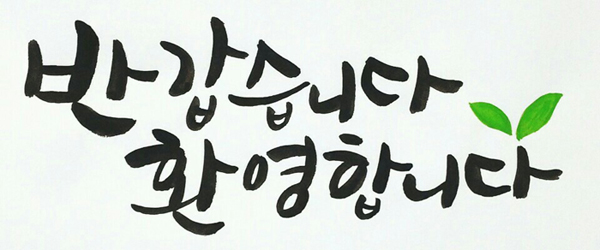 반갑습니다
환영합니다